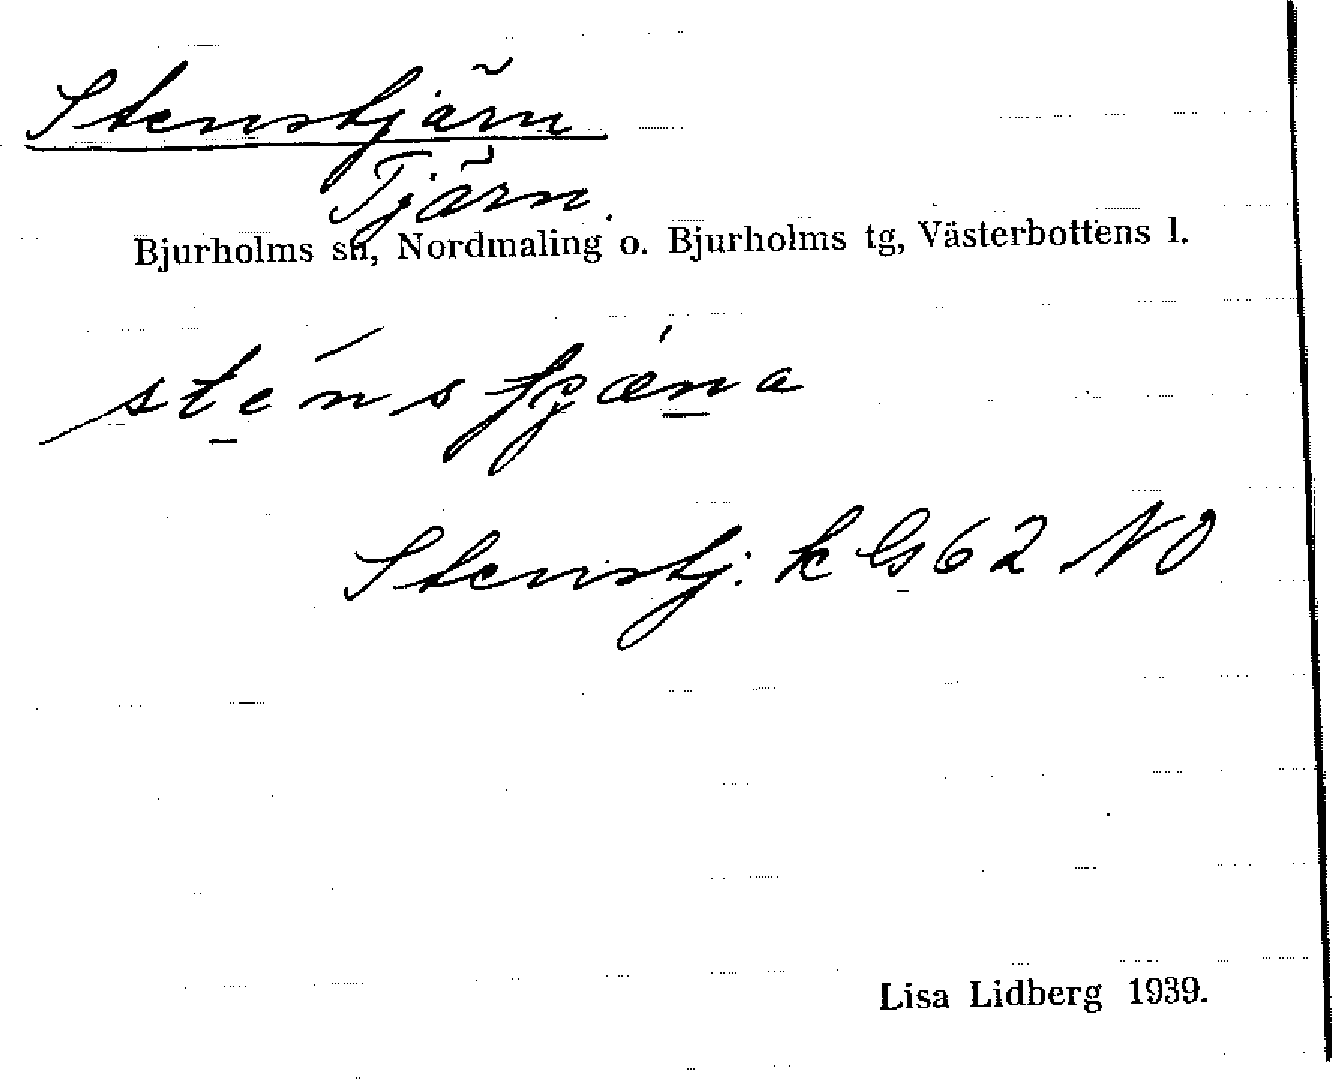 Stenstjärn
Tjärn.
Bjurholms sn, Nordmaling o. Bjurholms tg, Västerbottens l.
Stenstj: k G62 NO
Lisa Lidberg 1939.